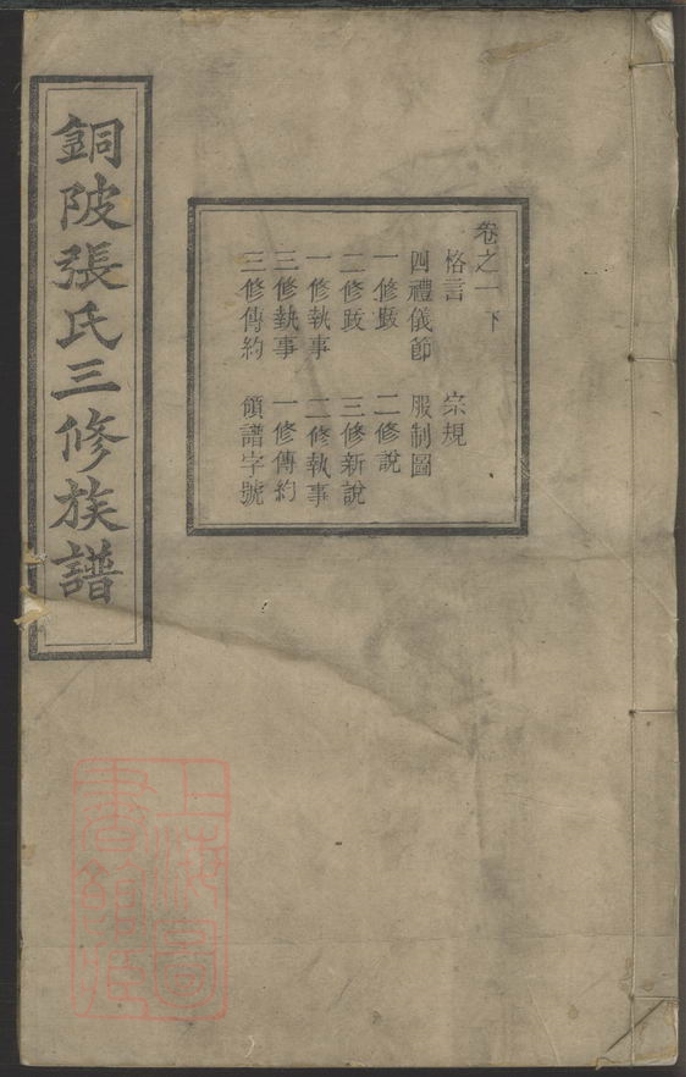 銅陂張氏三修族譜
卷之一下
格言 宗規
四禮儀節 服制圖
一修跋 二修說
二修跋 三修新說
一修執事 二修執事
三修執事 一修傳約
三修傳約 領譜字號
上海圖
書館藏